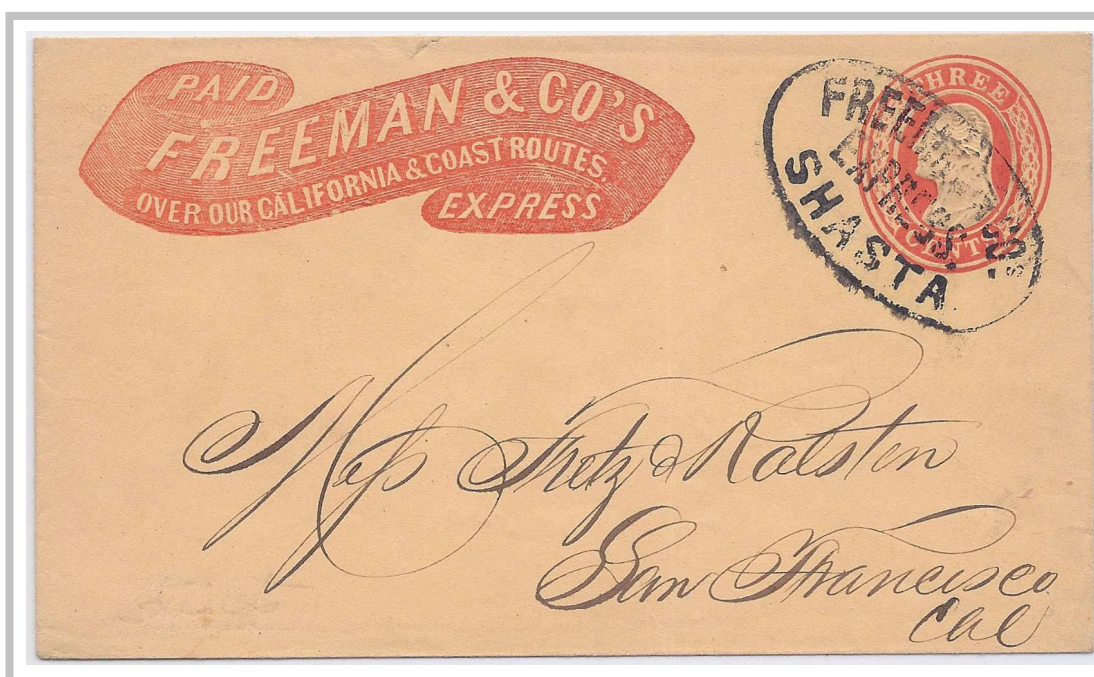 PAID
FREEMAN & CO'S
OVER OUR CALIFORNIA & COAST ROUTES.
EXPRESS
THREE
CENTS
FREEMAN & CO'S
EXPRESS.
SHASTA.
Mess Fretz & Ralston
San Francisco
Cal